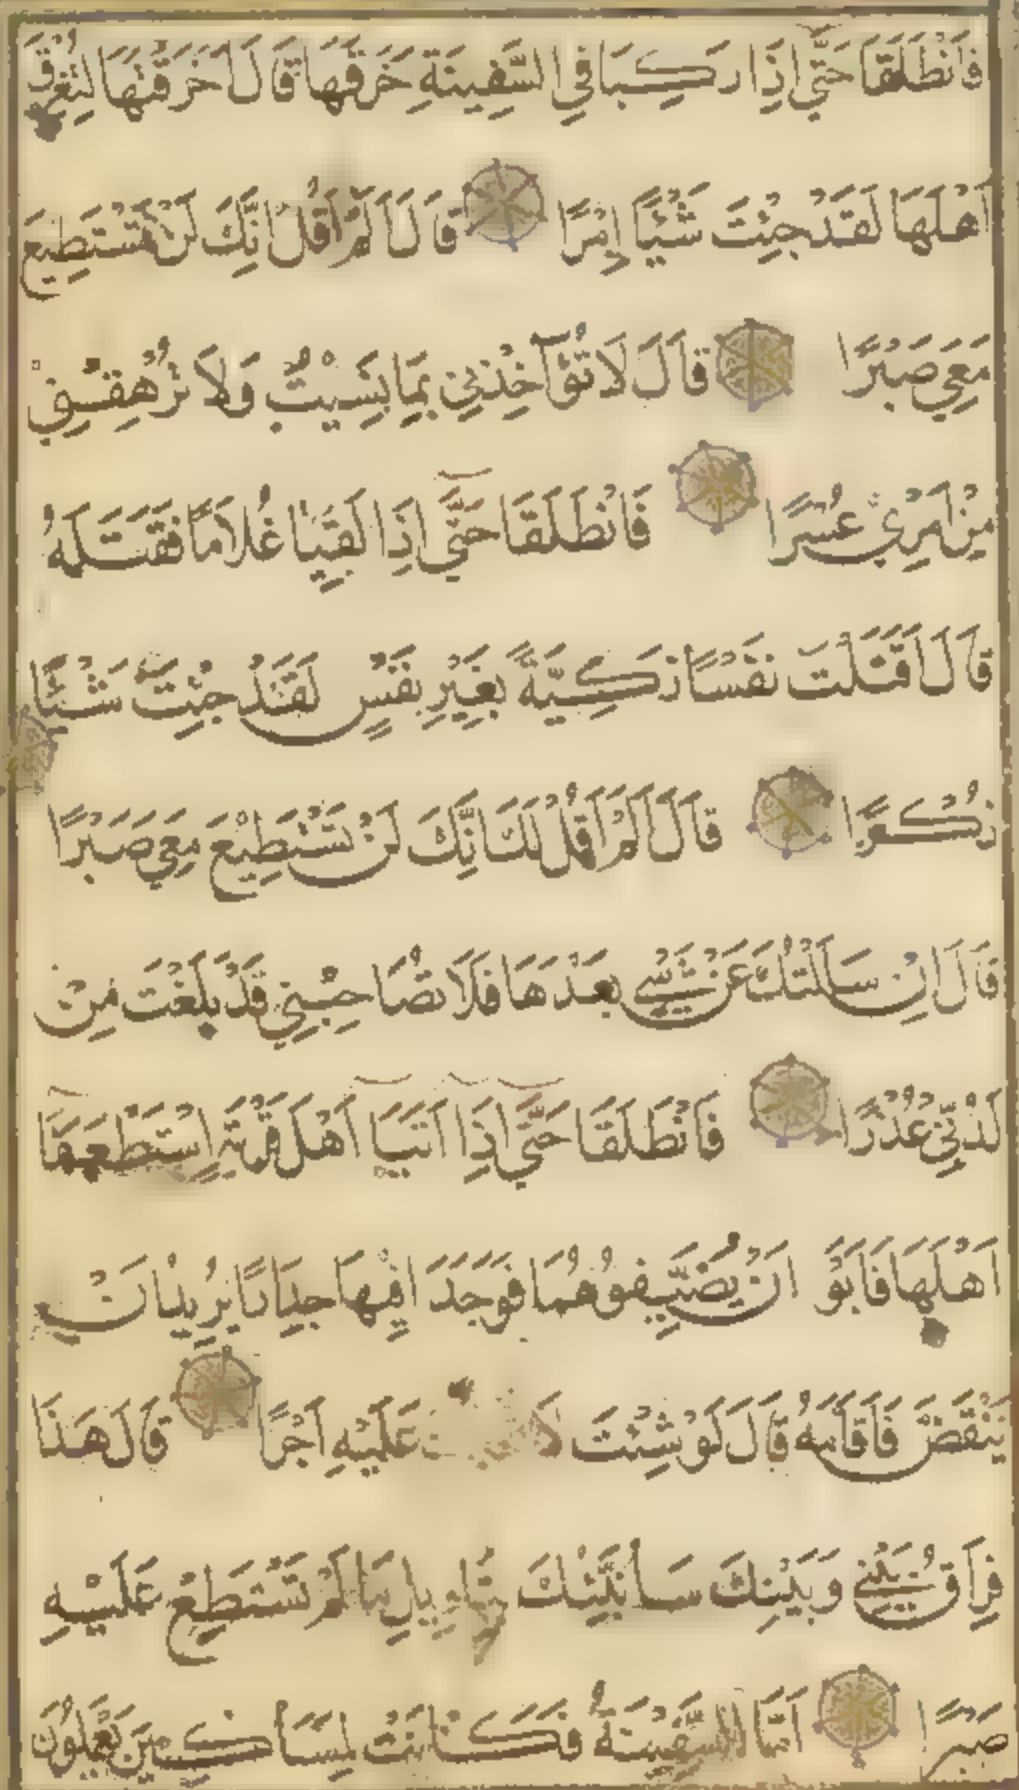 فَانْطَلَقَا حَتَّىٰ اِذَا رَكِبَا فِي السَّفِينَةِ خَرَقَهَا قَالَ اَخَرَقْتَهَا لِتُغْرِقَ
اَهْلَهَا لَقَدْ جِئْتَ شَيْئًا اِمْرًا قَالَ اَلَمْ اَقُلْ اِنَّكَ لَنْ تَسْتَطِيعَ
مَعِيَ صَبْرًا قَالَ لَا تُؤَاخِذْنِي بِمَا نَسِيتُ وَلَا تُرْهِقْنِي
مِنْ اَمْرِي عُسْرًا فَانْطَلَقَا حَتَّىٰ اِذَا لَقِيَا غُلَامًا فَقَتَلَهُ
قَالَ اَقَتَلْتَ نَفْسًا زَكِيَّةً بِغَيْرِ نَفْسٍ لَقَدْ جِئْتَ شَيْئًا
نُكْرًا قَالَ اَلَمْ اَقُلْ لَكَ اِنَّكَ لَنْ تَسْتَطِيْعَ مَعِيَ صَبْرًا
قَالَ اِنْ سَاَلْتُكَ عَنْ شَيْءٍ بَعْدَهَا فَلَا تُصَاحِبْنِي قَدْ بَلَغْتَ مِنْ
لَدُنِّي عُذْرًا فَانْطَلَقَا حَتَّىٰ اِذَا اَتَيَا اَهْلَ قَرْيَةٍ اِسْتَطْعَمَا
اَهْلَهَا فَاَبَوْ اَنْ يُضَيِّفُوهُمَا فَوَجَدَا فِيهَا جِدَارًا يُرِيدُ اَنْ
يَنْقَضَّ فَاَقَامَهُ قَالَ لَوْ شِئْتَ عَلَيْهِ اَجْرًا قَالَ هَذَا
فِرَاقُ بَيْنِي وَبَيْنِكَ سَاُنَبِّئُكَ بِتَاْوِيلِ مَا لَمْ تَسْتَطِعْ عَلَيْهِ
صَبْرًا اَمَّا السَّفِيْنَةُ فَكَانَتْ لِمَسَاكِينَ يَعْمَلُونَ